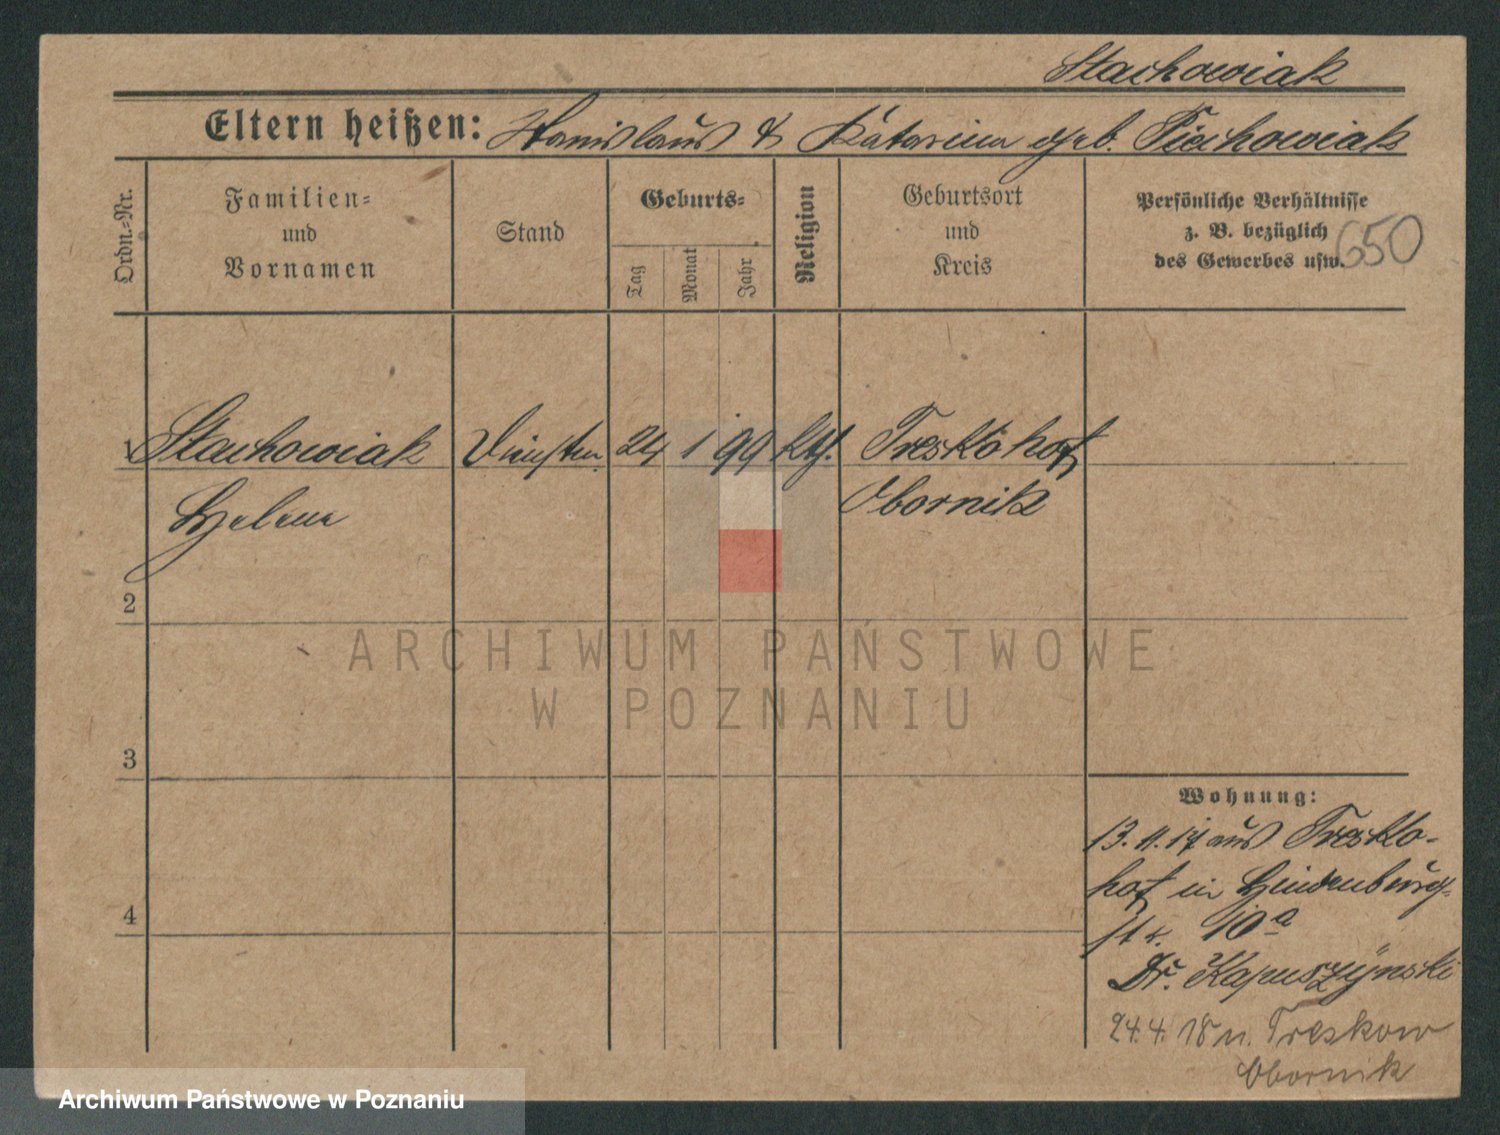 Stachowiak
Eltern heißen: Stanislaus & Katarina geb. Piechowiak
Ordn.-Nr.
Familien- und Vornamen
Stand
Geburts-
Tag
Monat
Jahr
Religion
Geburtsort und Kreis
Persönliche Verhältnisse
z. B. bezüglich
des Gewerbes usw.
650
1 Stachowiak 24 1 99 kth. Treskohof
Helene Obornik
2
3
4
Wohnung:
13.11.17 aus Tresko-
hof in Hindenburg-
str. 10a
Dr. Kapuszynski
24.4.18 n. Treskow
Obornik
ARCHIWUM PAŃSTWOWE
W POZNANIU
Archiwum Państwowe w Poznaniu